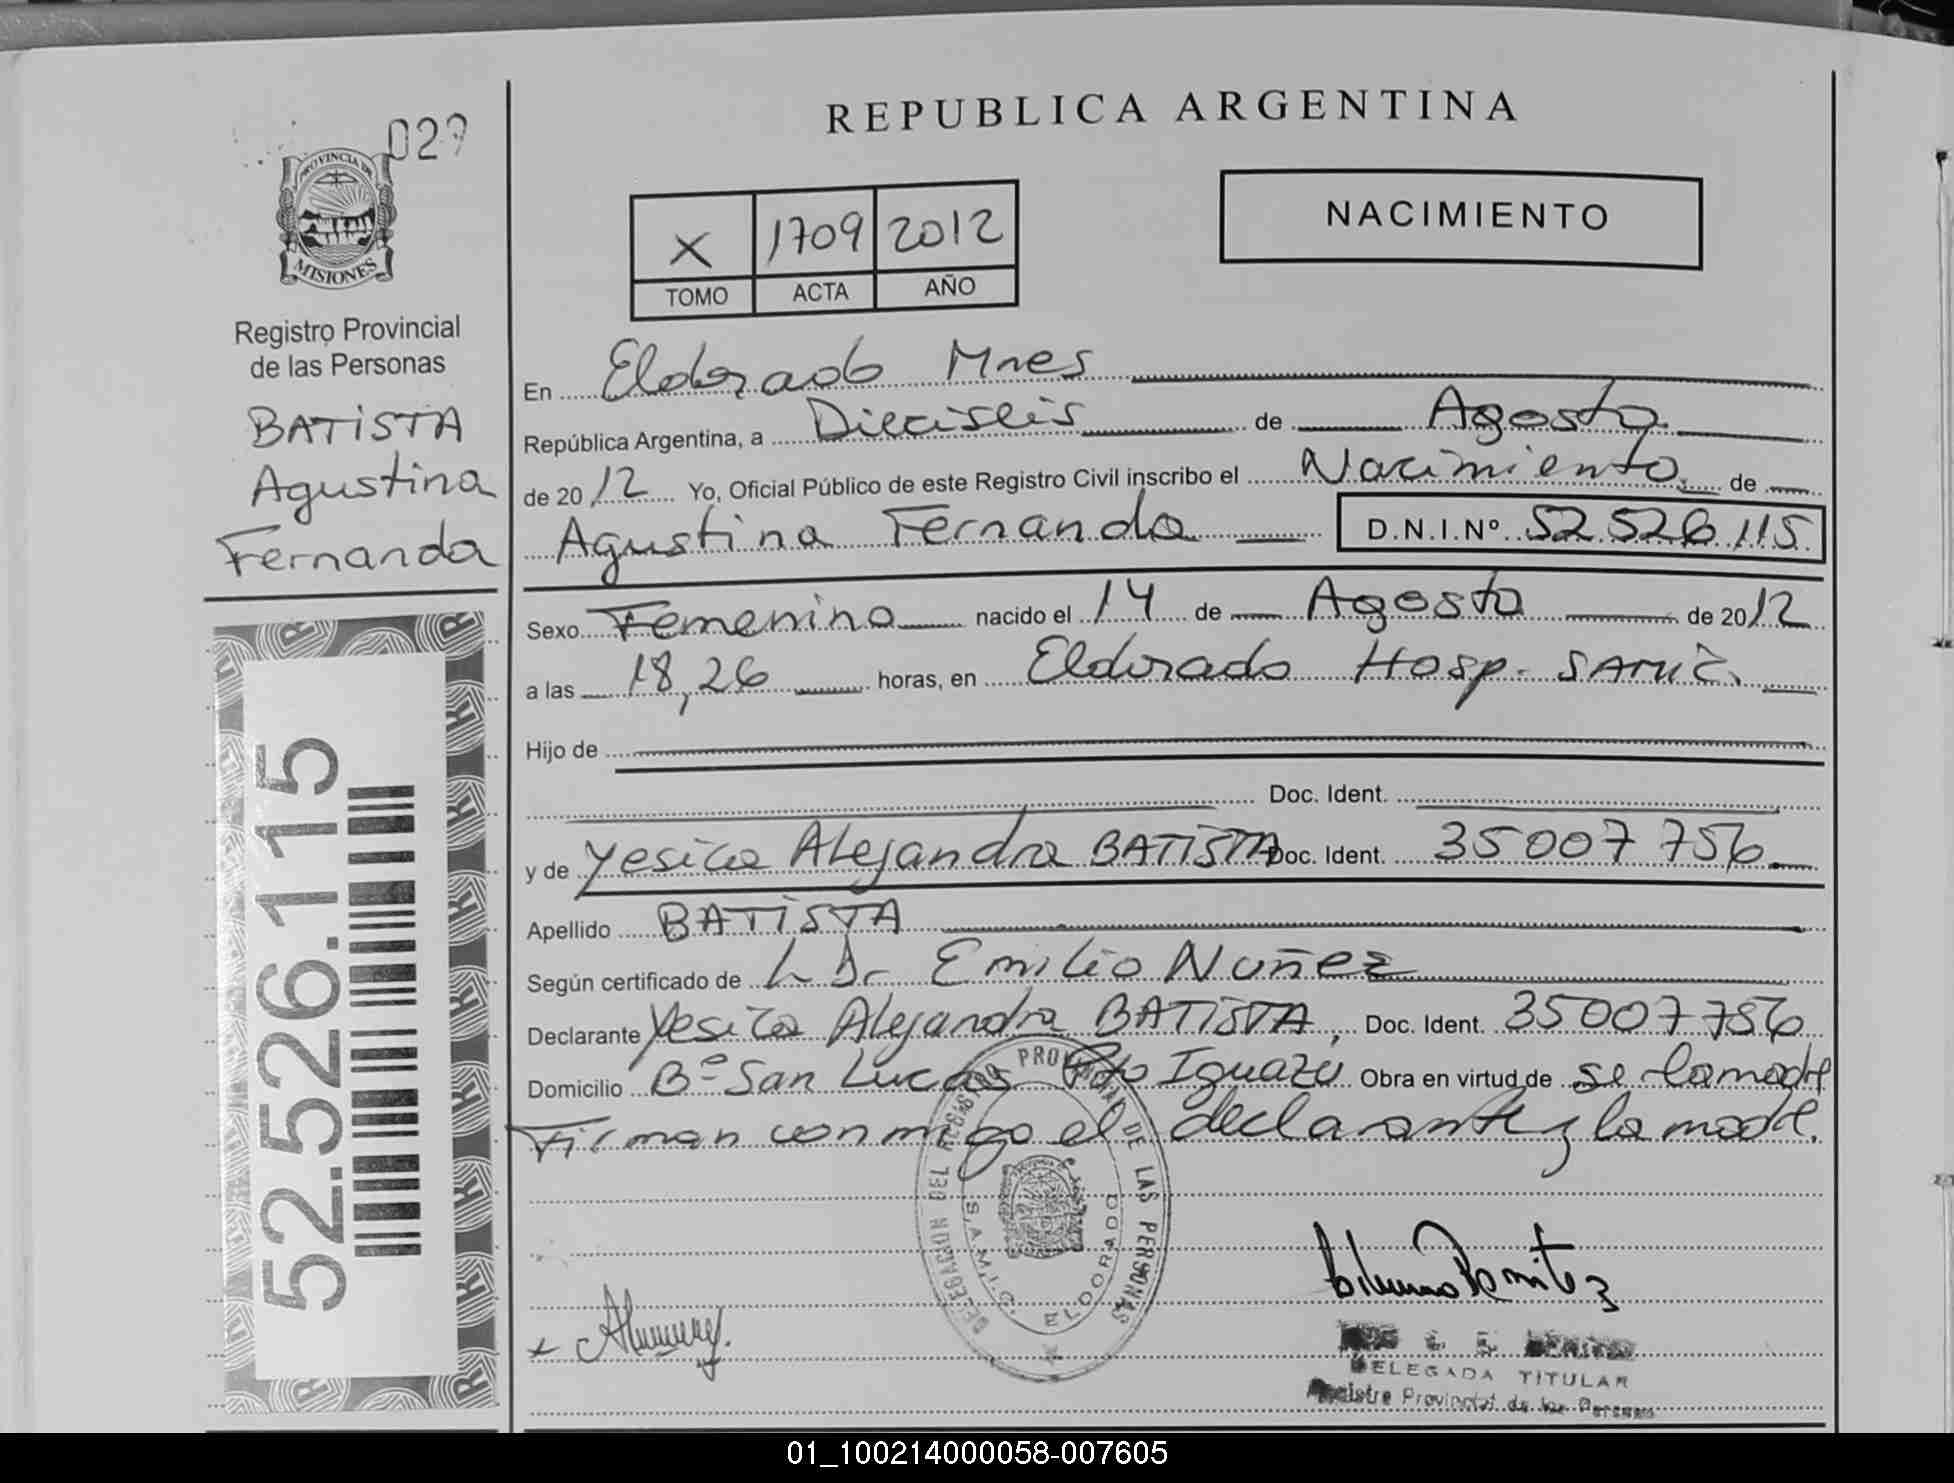 REPUBLICA ARGENTINA
029
PROVINCIA DE
MISIONES
Registro Provincial
de las Personas
BATISTA
Agustina
Fernanda
52.526.115
X 1709 2012
TOMO ACTA AÑO
NACIMIENTO
En Eldorado Mnes
República Argentina, a Dieciseis de Agosto
de 2012 Yo, Oficial Público de este Registro Civil inscribo el Nacimiento de
Agustina Fernanda D.N.I.Nº 52.526.115
Sexo Femenino nacido el 14 de Agosto de 2012
a las 18,26 horas, en Eldorado Hosp. SAMIC.
Hijo de
Doc. Ident.
y de Yesica Alejandra BATISTA Doc. Ident. 35007756
Apellido BATISTA
Según certificado de Dr Emilio Nuñez
Declarante Yesica Alejandra BATISTA, Doc. Ident. 35007756
Domicilio Bº San Lucas Pto Iguazú Obra en virtud de se la madre
Firman conmigo el declarante y la madre.
DELEGACION DEL REGISTRO PROVINCIAL DE LAS PERSONAS
S.A.M.I.C. ELDORADO
Benitez
DELEGADA TITULAR
Registro Provincial de las Personas
01_100214000058-007605